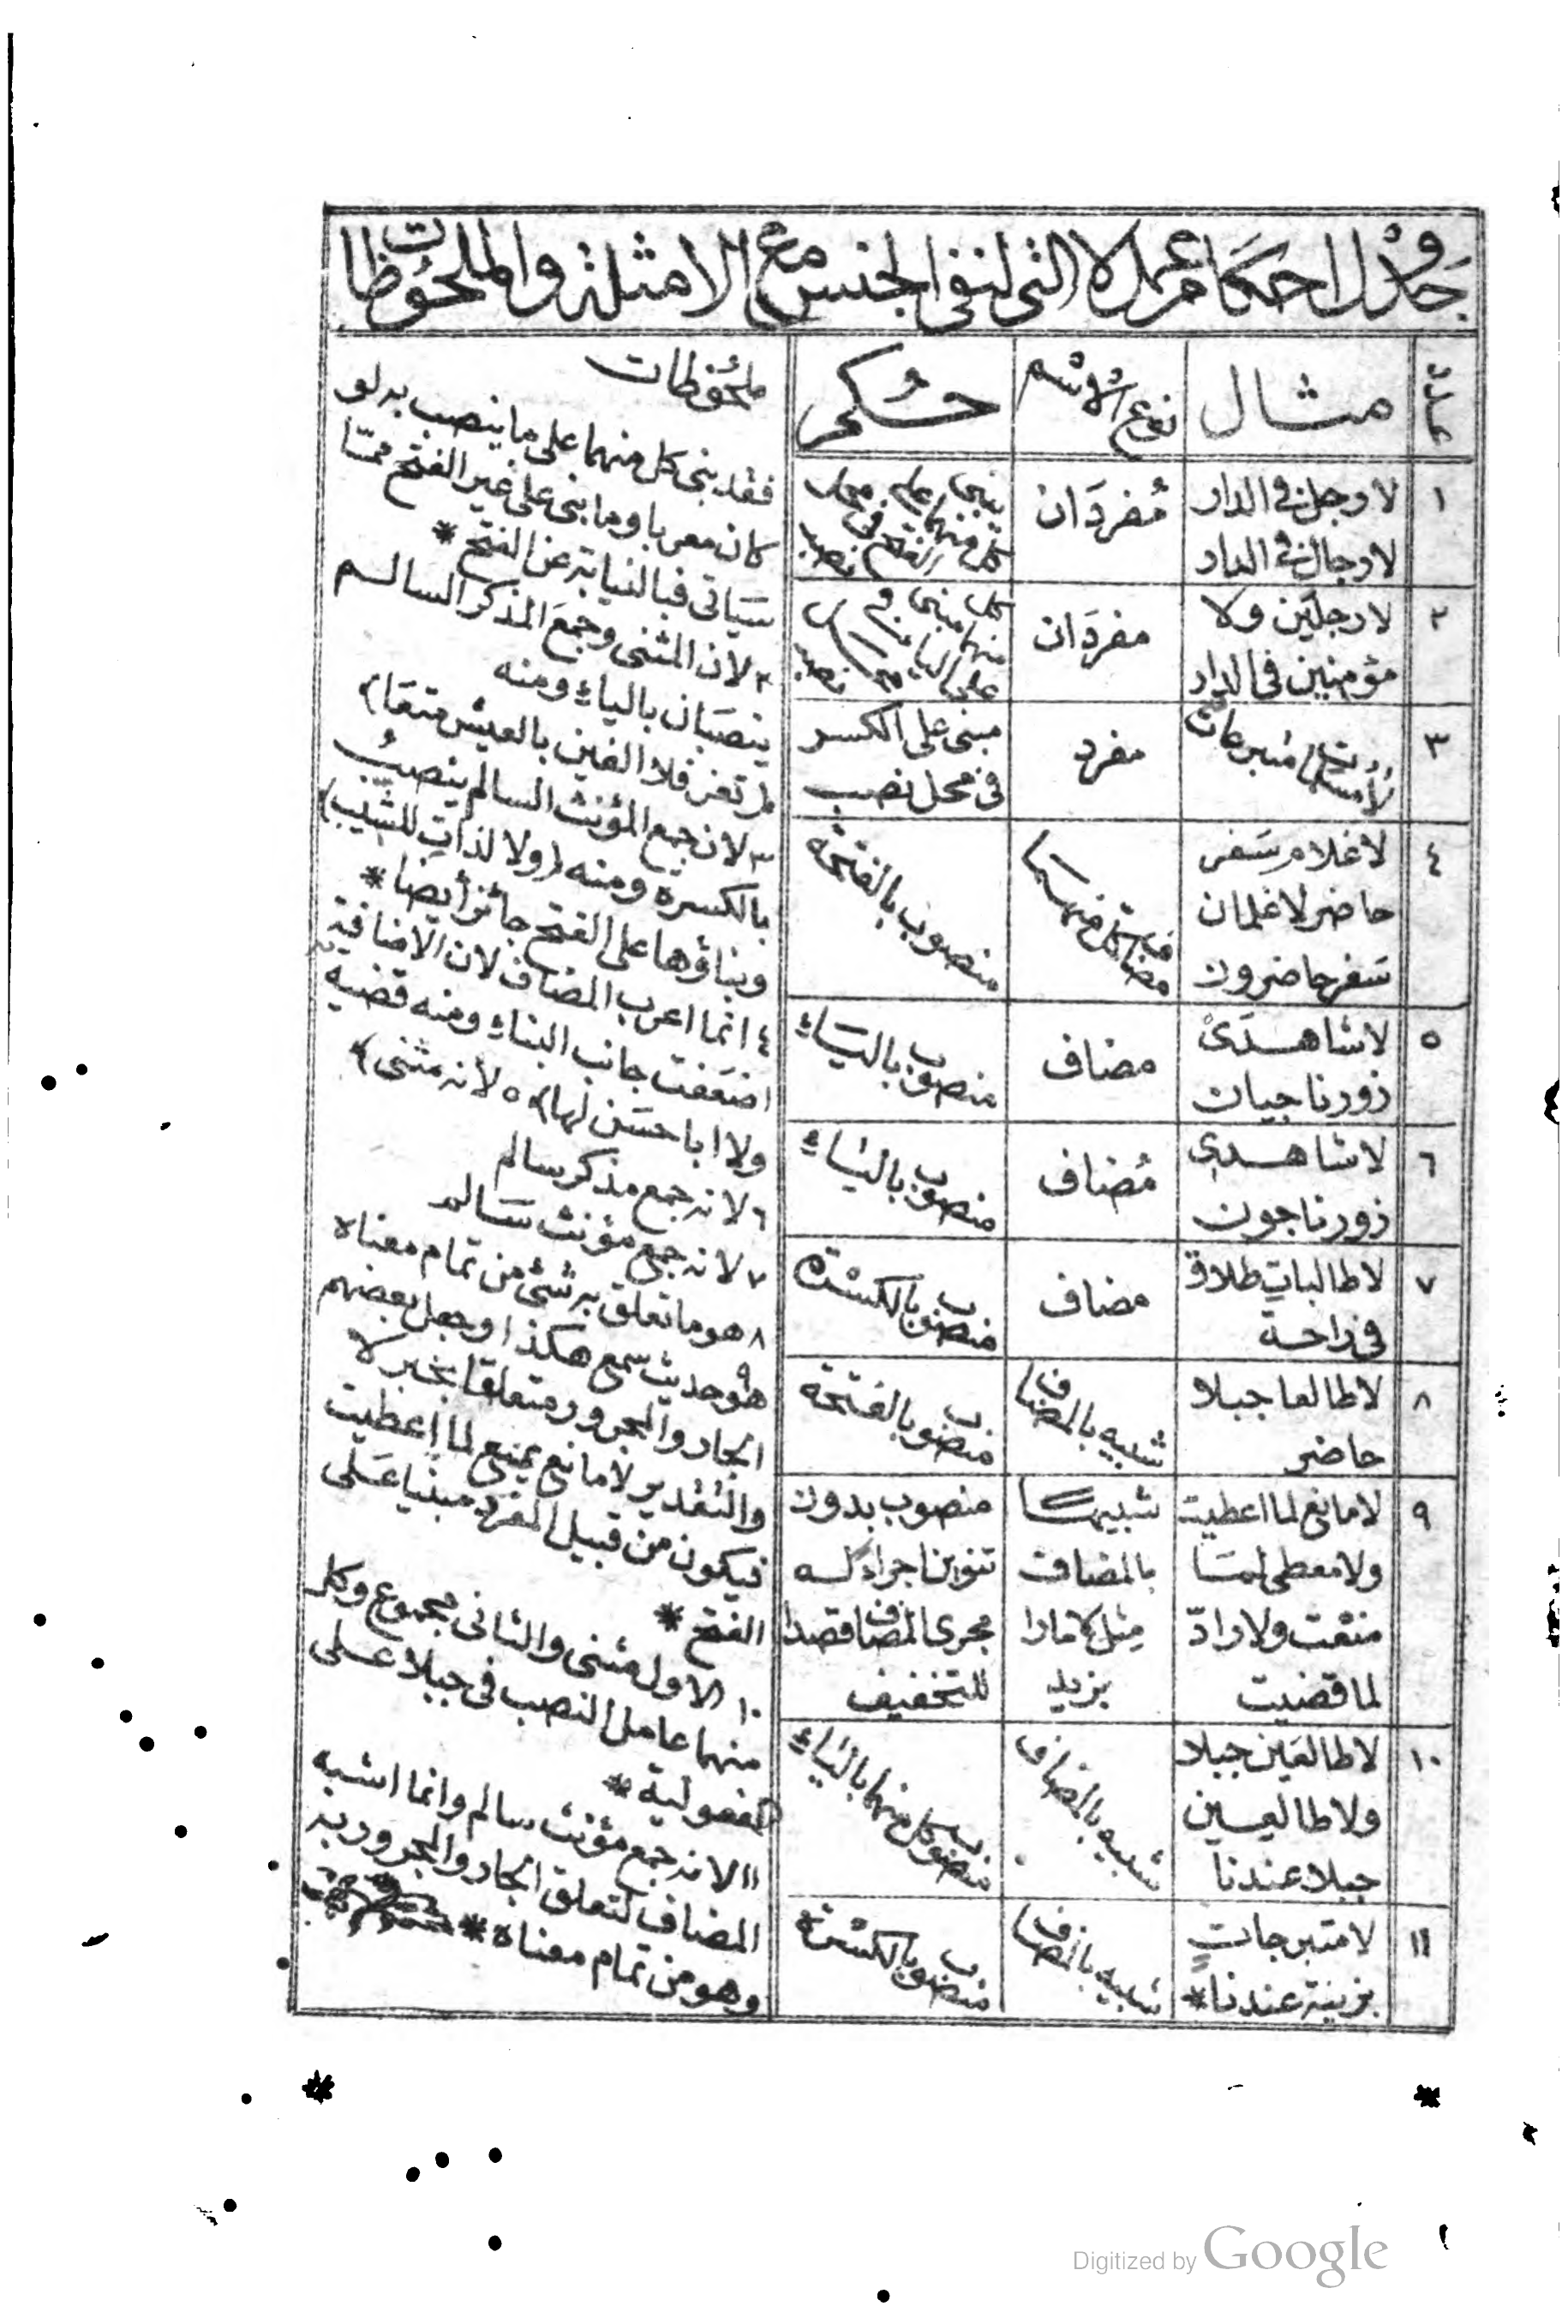 جدول احكام عمل لا التى لنفى الجنس مع الامثلة والملحوظات
عدد
مثال
نوع الاسم
حكم
ملحوظات
١
لا رجل فى الدار
لا رجال فى الدار
مُفردَان
يبنى
كل منهما على
الفتح فى محل
نصب
٢
لا رجلَين ولا
مؤمنين فى الدار
مفردَان
كل
منهما مبنى
على اليا فى
محل نصب
٣
لا مسلمات متبرجات
مفرد
مبنى على الكسر
فى محل نصب
٤
لا غلام سَفر
حاضر لا غلمان
سَفر حاضرون
مضاف كل منهما
منصوب بالفتحة
٥
لا شاهدَىْ
زور ناجيان
مضاف
منصوب بالياءِ
٦
لا شاهدِى
زور ناجون
مُضاف
منصوب بالياءِ
٧
لا طالباتِ طلاق
فى راحة
مضاف
منصوب بالكسْرة
٨
لا طالعا جبلا
حاضر
شبيه بالمضاف
منصوب بالفتحة
٩
لا مانع لما اعطيت
ولا معطى لمَا
منعْت ولا رادّ
لما قضيت
شبيهًا
بالمضاف
مثل لا مارا
بزيد
منصوب بدون
تنوين اجراءً له
مجرى المضاف قصدا
للتخفيف
١٠
لا طالعَين جبلا
ولا طالعين
جبلا عندنا
شبيه بالمضاف
منصوب كل منهما بالياءِ
١١
لا متبرجاتٍ
بزينة عندنا *
شبيه بالمضاف
منصوب بالكسْرة
فقد بنى كل منهما على ما ينصب به لو
كان معربا وما بنى على غير الفتح ممّا
سيَاتى فبالنيابة عن الفتح *
٢ لان المثنى وجمعَ المذكر السالم
ينصبَان بالياءِ ومنه
(تعز فلا الفين بالعيش متعَا)
٣ لان جمع المؤنث السالم ينصبُ
بالكسرة ومنه (ولا لذاتِ للشيب)
وبناؤها على الفتح جائز أيضا *
٤ انما اعرب المضاف لان الاضافة
اضعَفت جانب البناءِ ومنه قضية
ولا ابا حسَن لها) ٥ لانه مثنى)
٦ لانه جمع مذكر سالم
٧ لانه جمع مؤنث سَالم
٨ هو ما تعلق به شئ من تمام معناه
٩ هو حديث سمع هكذا وجعل بعضهم
الجار والمجرور متعلقا بخبر لا
والتقدير لا مانع يمنع لما اعطيت
فيكون من قبيل المفرد مبنيا عَلى
الفتح *
١٠ الاول مثنى والثانى مجموع وكل
منهما عامل النصب فى جبلا على
المفعولية *
١١ لانه جمع مؤنث سالم وانما اشبه
المضاف لتعلق الجار والمجرور به
وهو من تمام معناه *
* *
Digitized by Google